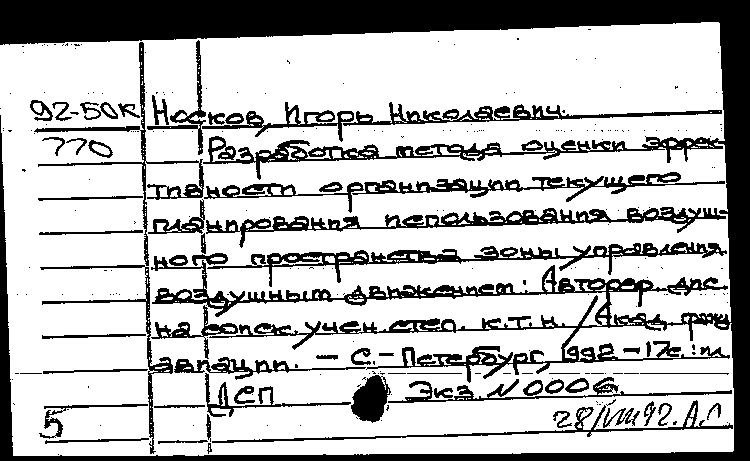 92-50к Носков, Игорь Николаевич.
770 Разработка метода оценки эффек-
тивности организации текущего
планирования использования воздуш-
ного пространства зоны управления
воздушным движением: Автореф. дис.
на соиск. учен. степ. к.т.н. / Акад. гражд.
авиации. — С.-Петербург, 1992 - 17с.: ил.
ДСП Экз. N 0006.
5 28/VIII 92. А.Л